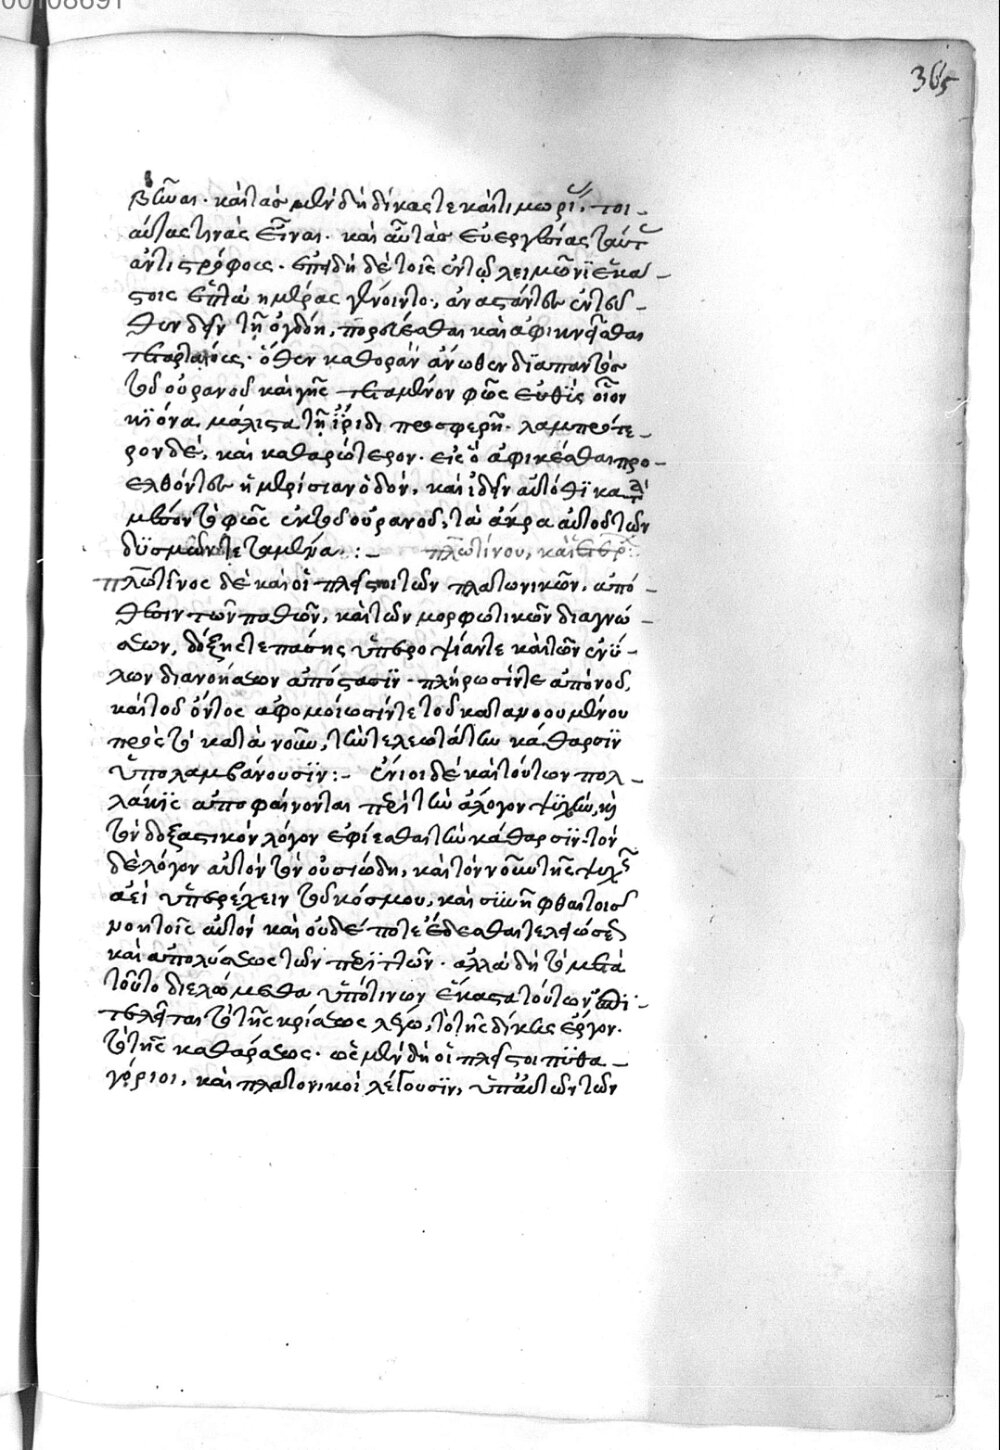 00108691
365
βιῶναι. καὶ τὰς μὲν δὴ δίκας τε καὶ τιμωρί. τοι-
αύτας τινὰς εἶναι. καὶ αὖ τὰς εὐεργεσίας ταύτ
ἀντιστρόφοις. ἐπειδὴ δὲ τοῖς ἐν τῷ λειμῶνι ἑκά-
στοις ἑπτὰ ἡμέραι γένοιντο, ἀναστάντας ἐντεῦ-
θεν δεῖν τῇ ὀγδόῃ, πορεύεσθαι καὶ ἀφικνεῖσθαι
τεταρταίους. ὅθεν καθορᾶν ἄνωθεν διαπαντὸς
τοῦ οὐρανοῦ καὶ γῆς τεταμένον φῶς εὐθὺς οἷον
κίονα μάλιστα τῇ ἴριδι προσφερῆ. λαμπρότε-
ρον δὲ, καὶ καθαρώτερον. εἰς ὃ ἀφικέσθαι προ-
ελθόντας ἡμερίσιαν ὁδὸν, καὶ ἰδεῖν αὐτόθι κατὰ
μέσον τὸ φῶς ἐκ τοῦ οὐρανοῦ, τὰ ἄκρα αὐτοῦ τῶν
δυσμῶν τεταμένα :-
πλωτίνου, καὶ
πλωτῖνος δὲ καὶ οἱ πλεῖστοι τῶν πλατωνικῶν, ἀπό-
θεσιν τῶν παθῶν, καὶ τῶν μορφωτικῶν διαγνώ-
σεων, δόξης τε πάσης ὑπεροψίαν τε καὶ τῶν ἐνύ-
λων διανοήσεων ἀπόστασιν. πλήρωσίν τε ἀπὸ νοῦ,
καὶ τοῦ ὄντος ἀφομοίωσίν τε τοῦ κατανοουμένου
πρὸς τὸ κατὰ νοῦν, τὴν τελεωτάτην κάθαρσιν
ὑπολαμβάνουσιν :- ἔνιοι δὲ καὶ τούτων πολ-
λάκις ἀποφαίνονται περὶ τὴν ἄλογον ψυχὴν, καὶ
τὸν δοξαστικὸν λόγον ἐφίεσθαι τὴν κάθαρσιν. τὸν
δὲ λόγον αὐτὸν τὸν οὐσιώδη, καὶ τὸν νοῦν τῆς ψυχῆς
ἀεὶ ὑπερέχειν τοῦ κόσμου, καὶ συνῆφθαι τοῖς
νοητοῖς αὐτὸν καὶ οὐδέποτε δεῖσθαι τελειώσεως
καὶ ἀπολύσεως τῶν περιττῶν. ἀλλὰ δὴ τὸ μετὰ
τοῦτο διελώμεθα ὑπὸ τίνων ἕκαστα τούτων ἐπι-
τελεῖται τὸ τῆς κρίσεως λέγω, τὸ τῆς δίκης ἔργον.
τὸ τῆς καθάρσεως. ὡς μὲν δὴ οἱ πλεῖστοι πυθα-
γόριοι, καὶ πλατονικοὶ λέγουσιν, ὑπ' αὐτῶν τῶν